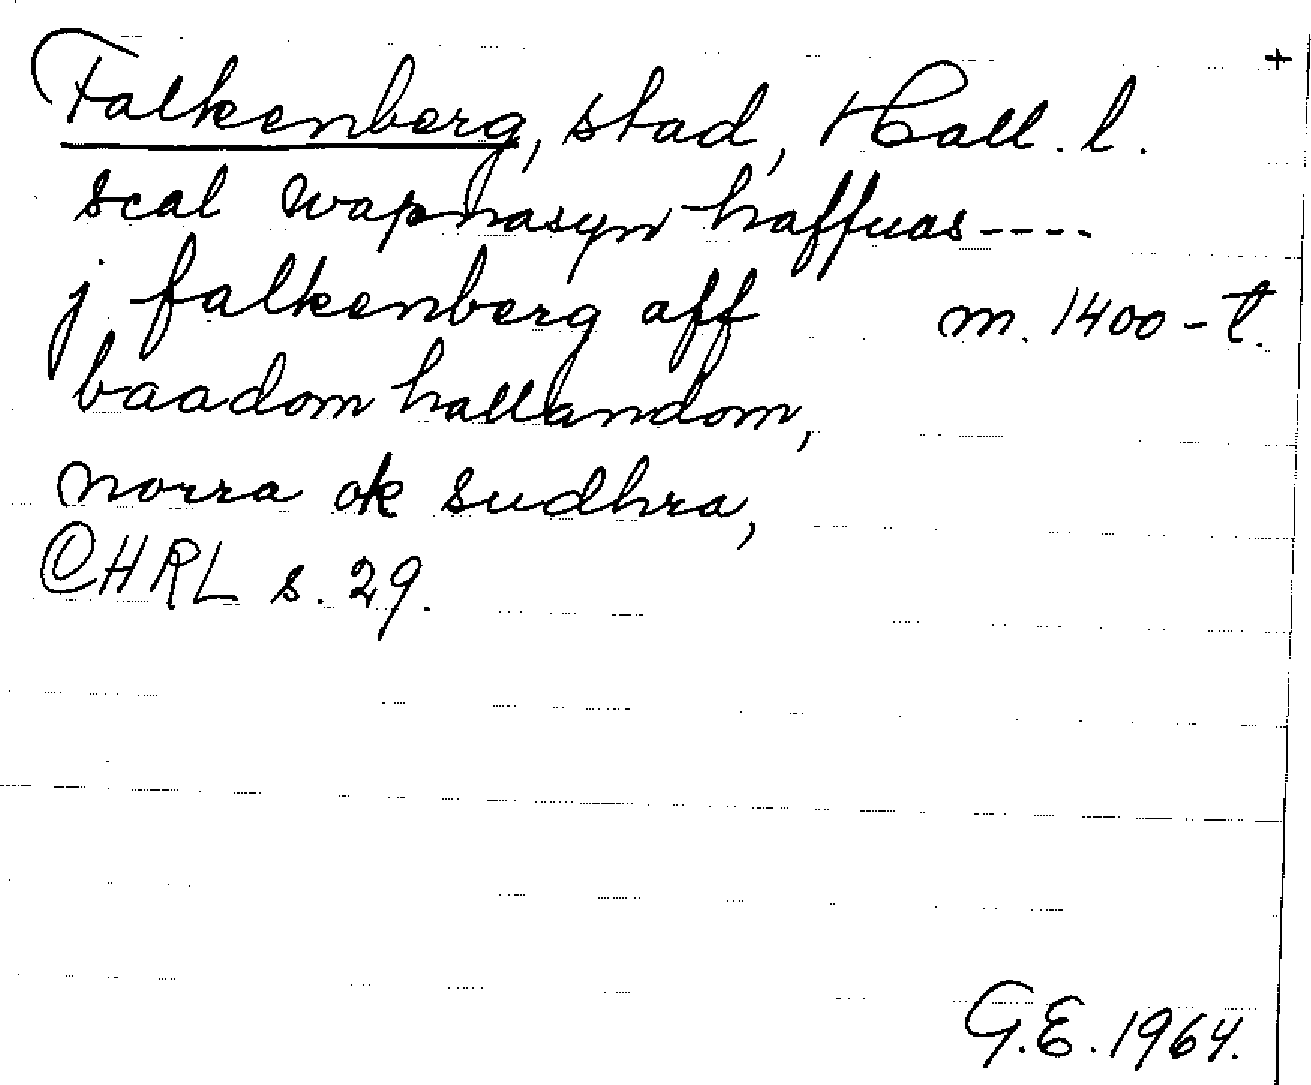 +
Falkenberg, stad, Hall. l.
scal wapnasyn haffuas----
j falkenberg aff m. 1400-t.
baadom hallandom,
norra ok sudhra,
CHRL s. 29.
G.E. 1964.